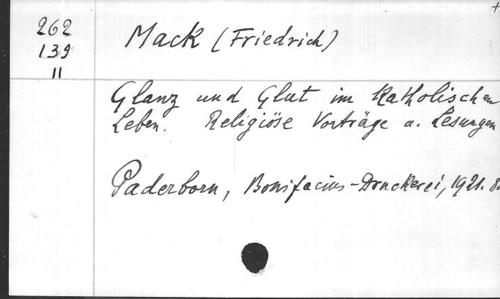 262
139
11
Mack (Friedrich)
Glanz und Glut im Katholischen
Leben. Religiöse Vorträge u. Lesungen
Paderborn, Bonifacius-Druckerei, 1921. 8.